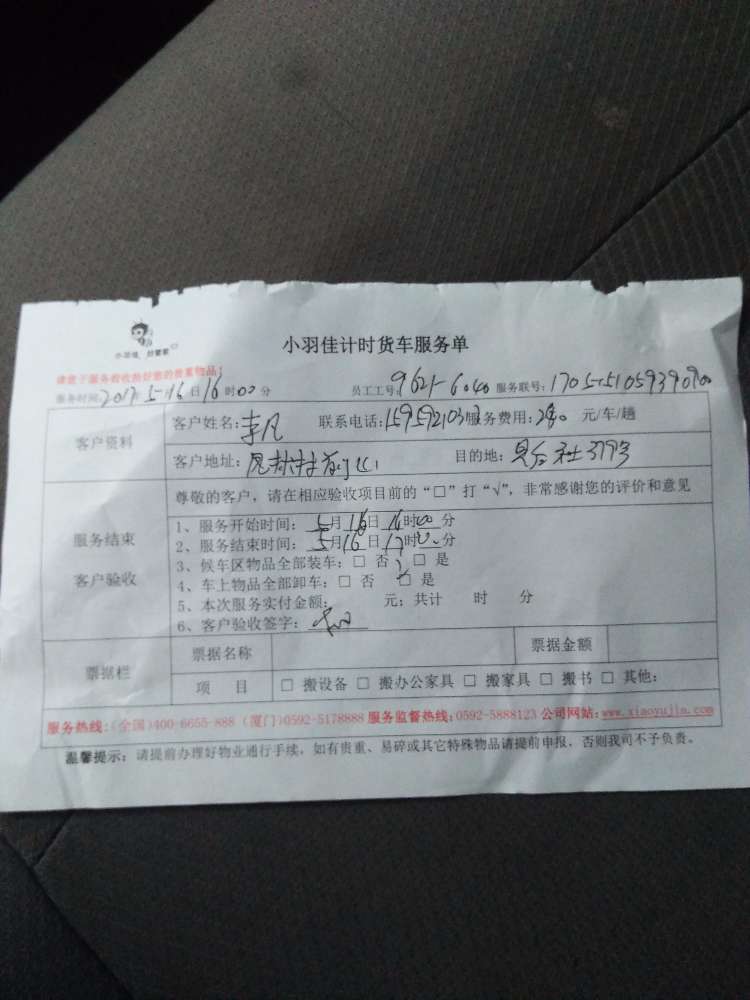 小羽佳 好管家
小羽佳计时货车服务单
请您于服务前收拾好您的贵重物品!
服务时间:2017年5月16日16时00分 员工工号:9621-6040 服务联号:
客户资料
客户姓名:李凡 联系电话: 服务费用: 元/车/趟
客户地址: 目的地:
服务结束
客户验收
尊敬的客户,请在相应验收项目前的“□”打“√”,非常感谢您的评价和意见
1、服务开始时间:5月16日16时00分
2、服务结束时间:5月16日17时00分
3、候车区物品全部装车:□ 否 □ 是
4、车上物品全部卸车:□ 否 □ 是
5、本次服务实付金额: 元;共计 时 分
6、客户验收签字:
票据栏
票据名称 票据金额
项 目 □ 搬设备 □ 搬办公家具 □ 搬家具 □ 搬书 □ 其他:
服务热线:(全国)400-6655-888 (厦门)0592-5178888 服务监督热线:0592-5888123 公司网站:www.xiaoyujia.com
温馨提示:请提前办理好物业通行手续,如有贵重、易碎或其它特殊物品请提前申报,否则我司不予负责。